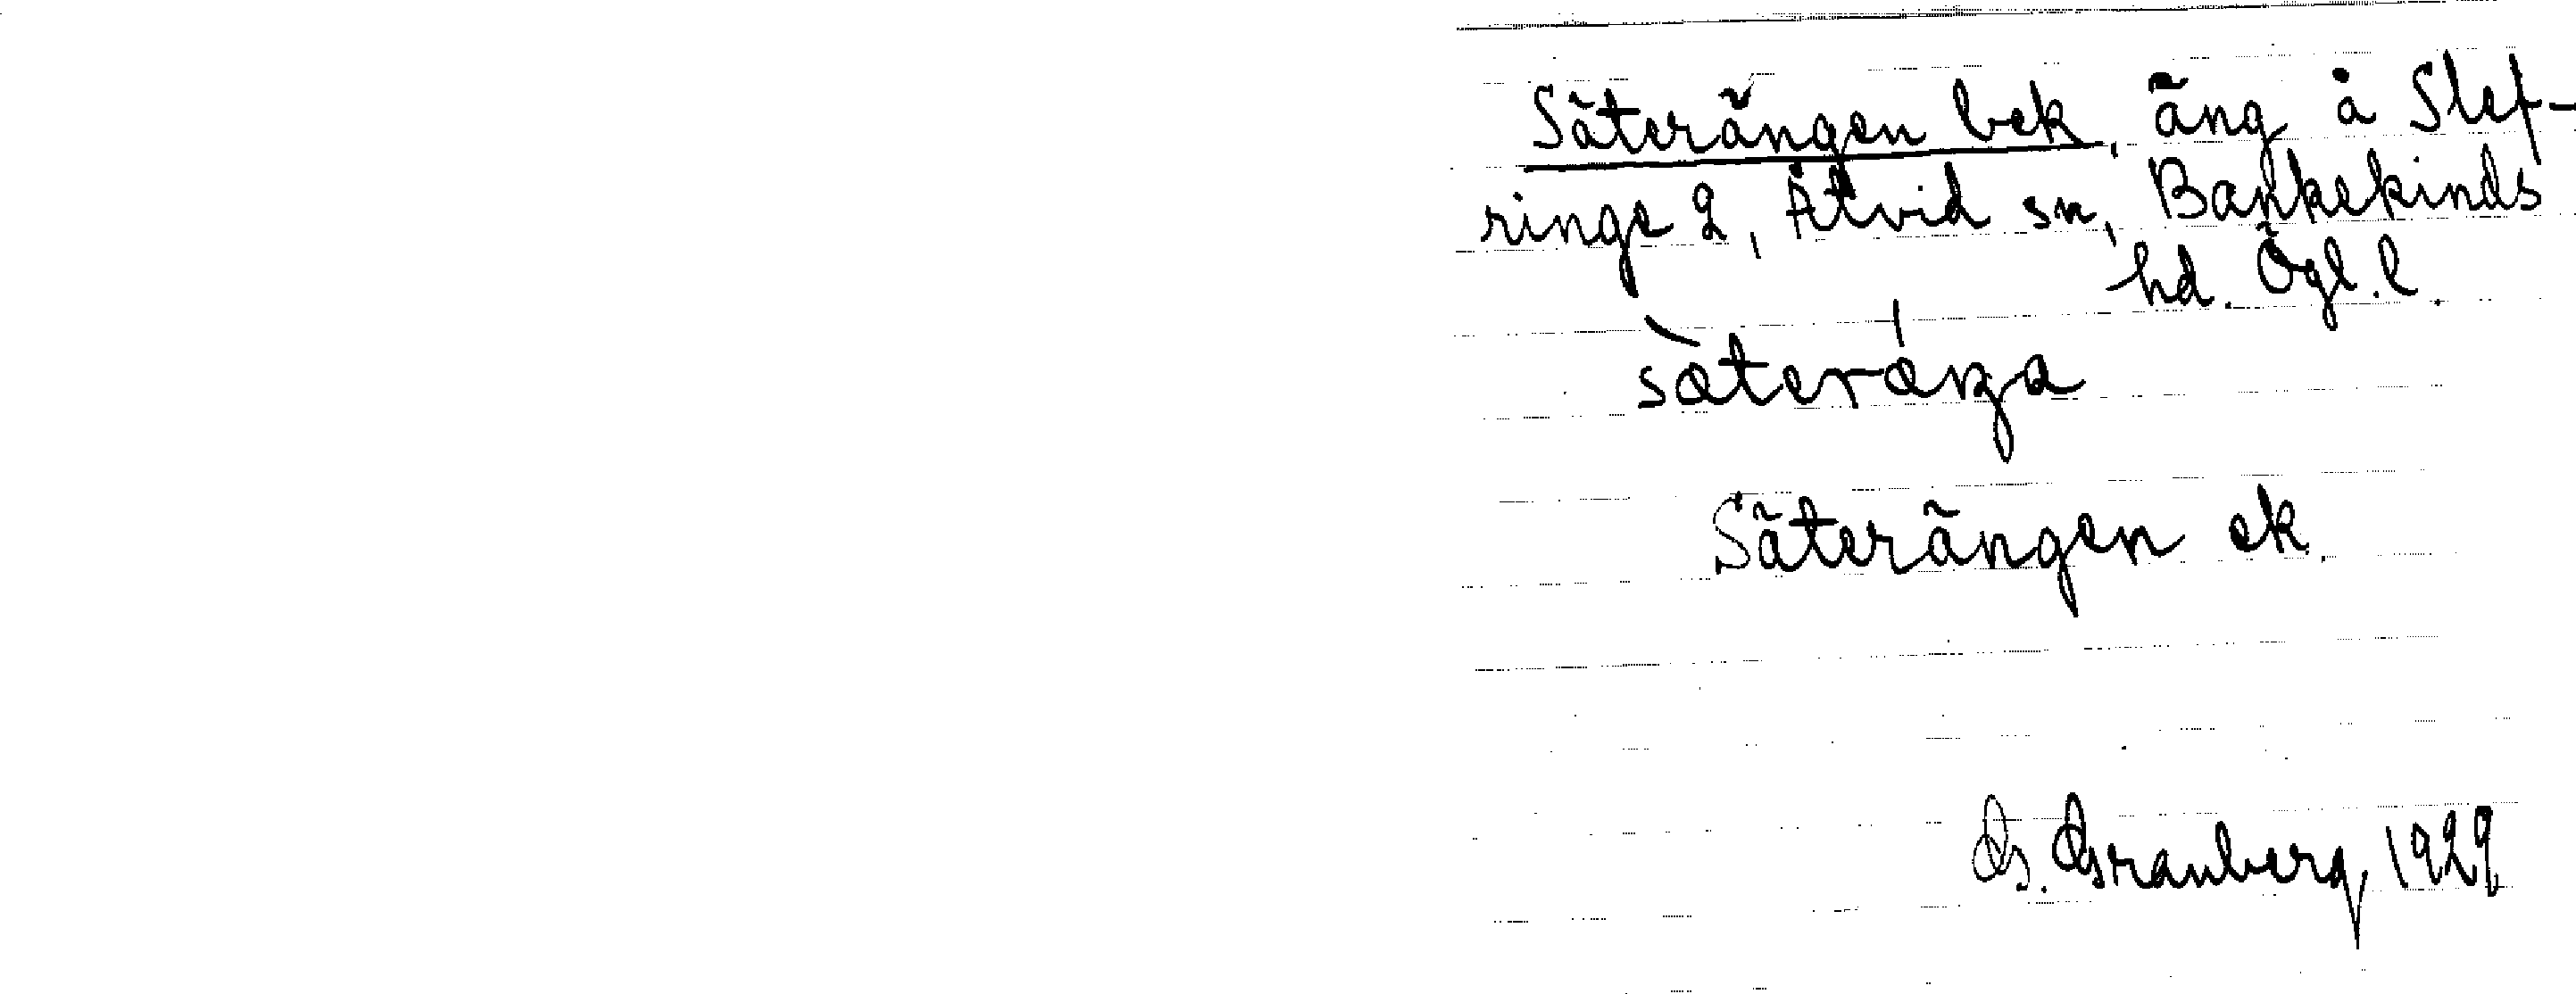 Säterängen bek, äng å Slef-
ringe 2, Åtvid sn, Bankekinds
hd. Ögl. l.
sàteráŋa
Säterängen ek.
G. Granberg 1929